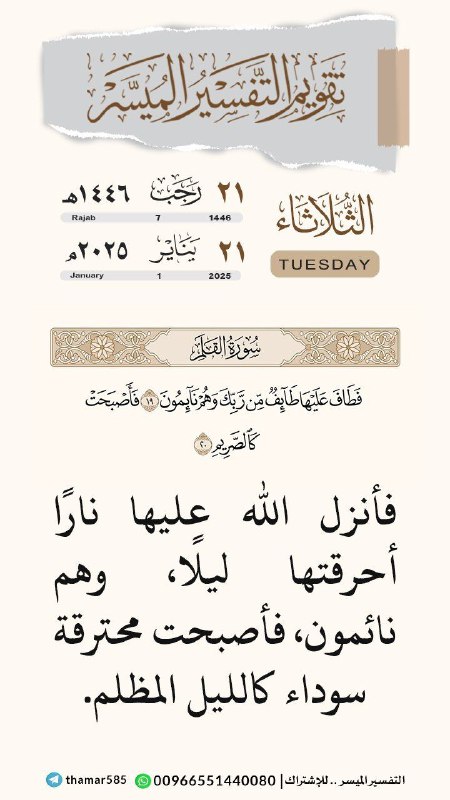 تقويم التَّفسير الميسَّر
الثُّلَاثَاء
TUESDAY
٢١ رَجَب ١٤٤٦هـ
Rajab 7 1446
٢١ يَنَاير ٢٠٢٥م
January 1 2025
سُورَةُ القَلَمِ
فَطَافَ عَلَيْهَا طَآئِفٌ مِّن رَّبِّكَ وَهُمْ نَآئِمُونَ ١٩ فَأَصْبَحَتْ
كَالصَّرِيمِ ٢٠
فأنزل الله عليها نارًا
أحرقتها ليلًا، وهم
نائمون، فأصبحت محترقة
سوداء كالليل المظلم.
التفسير الميسر .. للإشتراك | 00966551440080 thamar585